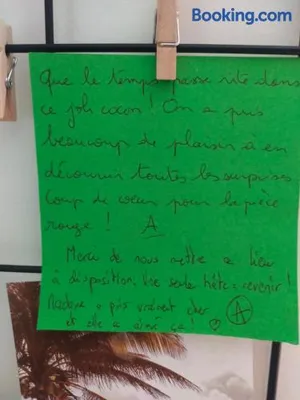 Booking.com
Que le temps passe vite dans
ce joli cocon ! On a pris
beaucoup de plaisir à en
découvrir toutes les surprises
coup de cœur pour la pièce
rouge ! A
Merci de nous mettre ce lieu
à disposition. Une seule hâte : revenir !
a pris vraiment cher
et elle a aimé ça ! A